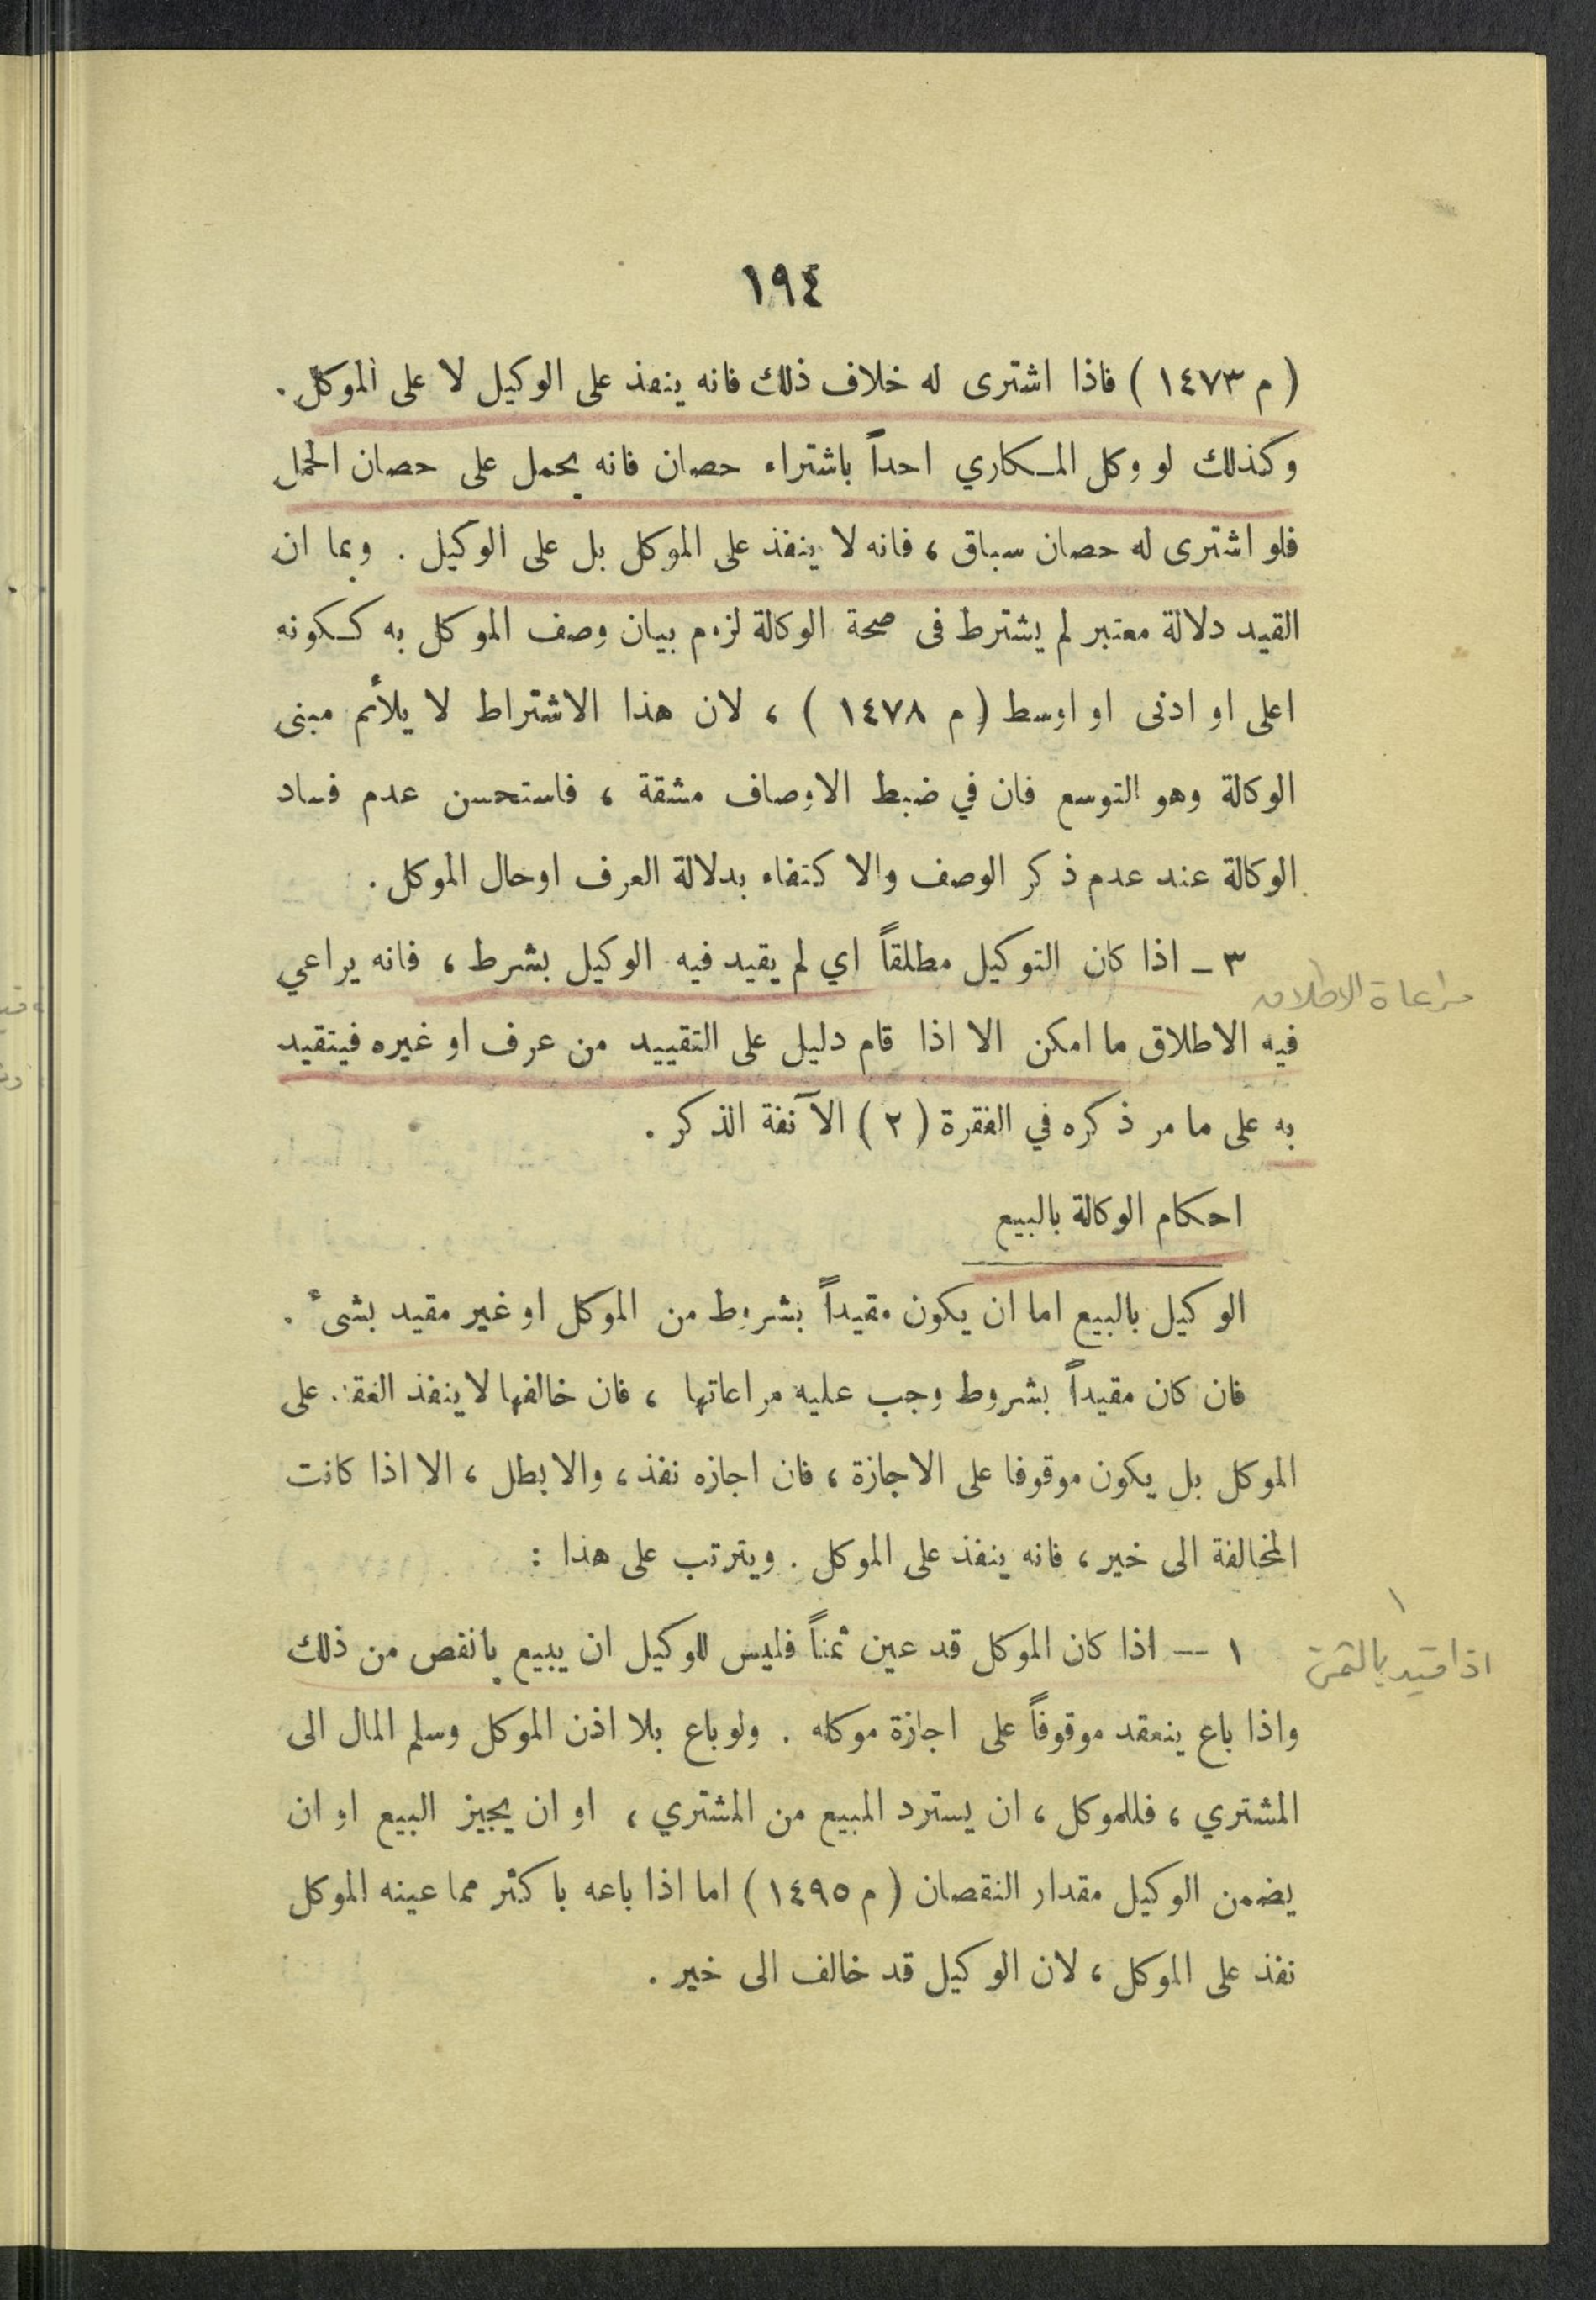 ١٩٤
( م ١٤٧٣ ) فاذا اشترى له خلاف ذلك فانه ينفذ على الوكيل لا على الموكل .
وكذلك لو وكل المكاري احداً باشتراء حصان فانه يحمل على حصان الحمل
فلو اشترى له حصان سباق ، فانه لا ينفذ على الموكل بل على الوكيل . وبما ان
القيد دلالة معتبر لم يشترط فى صحة الوكالة لزوم بيان وصف الموكل به ككونه
اعلى او ادنى او اوسط ( م ١٤٧٨ ) ، لان هذا الاشتراط لا يلأئم مبنى
الوكالة وهو التوسع فان في ضبط الاوصاف مشقة ، فاستحسن عدم فساد
الوكالة عند عدم ذكر الوصف والاكتفاء بدلالة العرف اوحال الموكل .
٣ – اذا كان التوكيل مطلقاً اي لم يقيد فيه الوكيل بشرط ، فانه يراعي
مراعاة الاطلاق
فيه الاطلاق ما امكن الا اذا قام دليل على التقييد من عرف او غيره فيتقيد
به على ما مر ذكره في الفقرة ( ٢ ) الآنفة الذكر .
احكام الوكالة بالبيع
الوكيل بالبيع اما ان يكون مقيداً بشروط من الموكل او غير مقيد بشىء .
فان كان مقيداً بشروط وجب عليه مراعاتها ، فان خالفها لا ينفذ العقد على
الموكل بل يكون موقوفا على الاجازة ، فان اجازه نفذ ، والا بطل ، الا اذا كانت
المخالفة الى خير ، فانه ينفذ على الموكل . ويترتب على هذا :
١
١ — اذا كان الموكل قد عين ثمناً فليس للوكيل ان يبيع بانقص من ذلك
اذا قيد بالثمن
واذا باع ينعقد موقوفاً على اجازة موكله . ولو باع بلا اذن الموكل وسلم المال الى
المشتري ، فللموكل ، ان يسترد المبيع من المشتري ، او ان يجيز البيع او ان
يضمن الوكيل مقدار النقصان ( م ١٤٩٥ ) اما اذا باعه باكثر مما عينه الموكل
نفذ على الموكل ، لان الوكيل قد خالف الى خير .